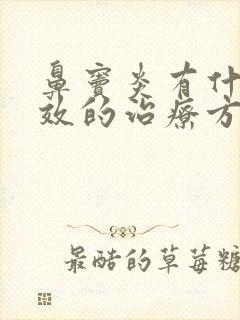 鼻窦炎有什
效的治疗方
最酷的草莓糖